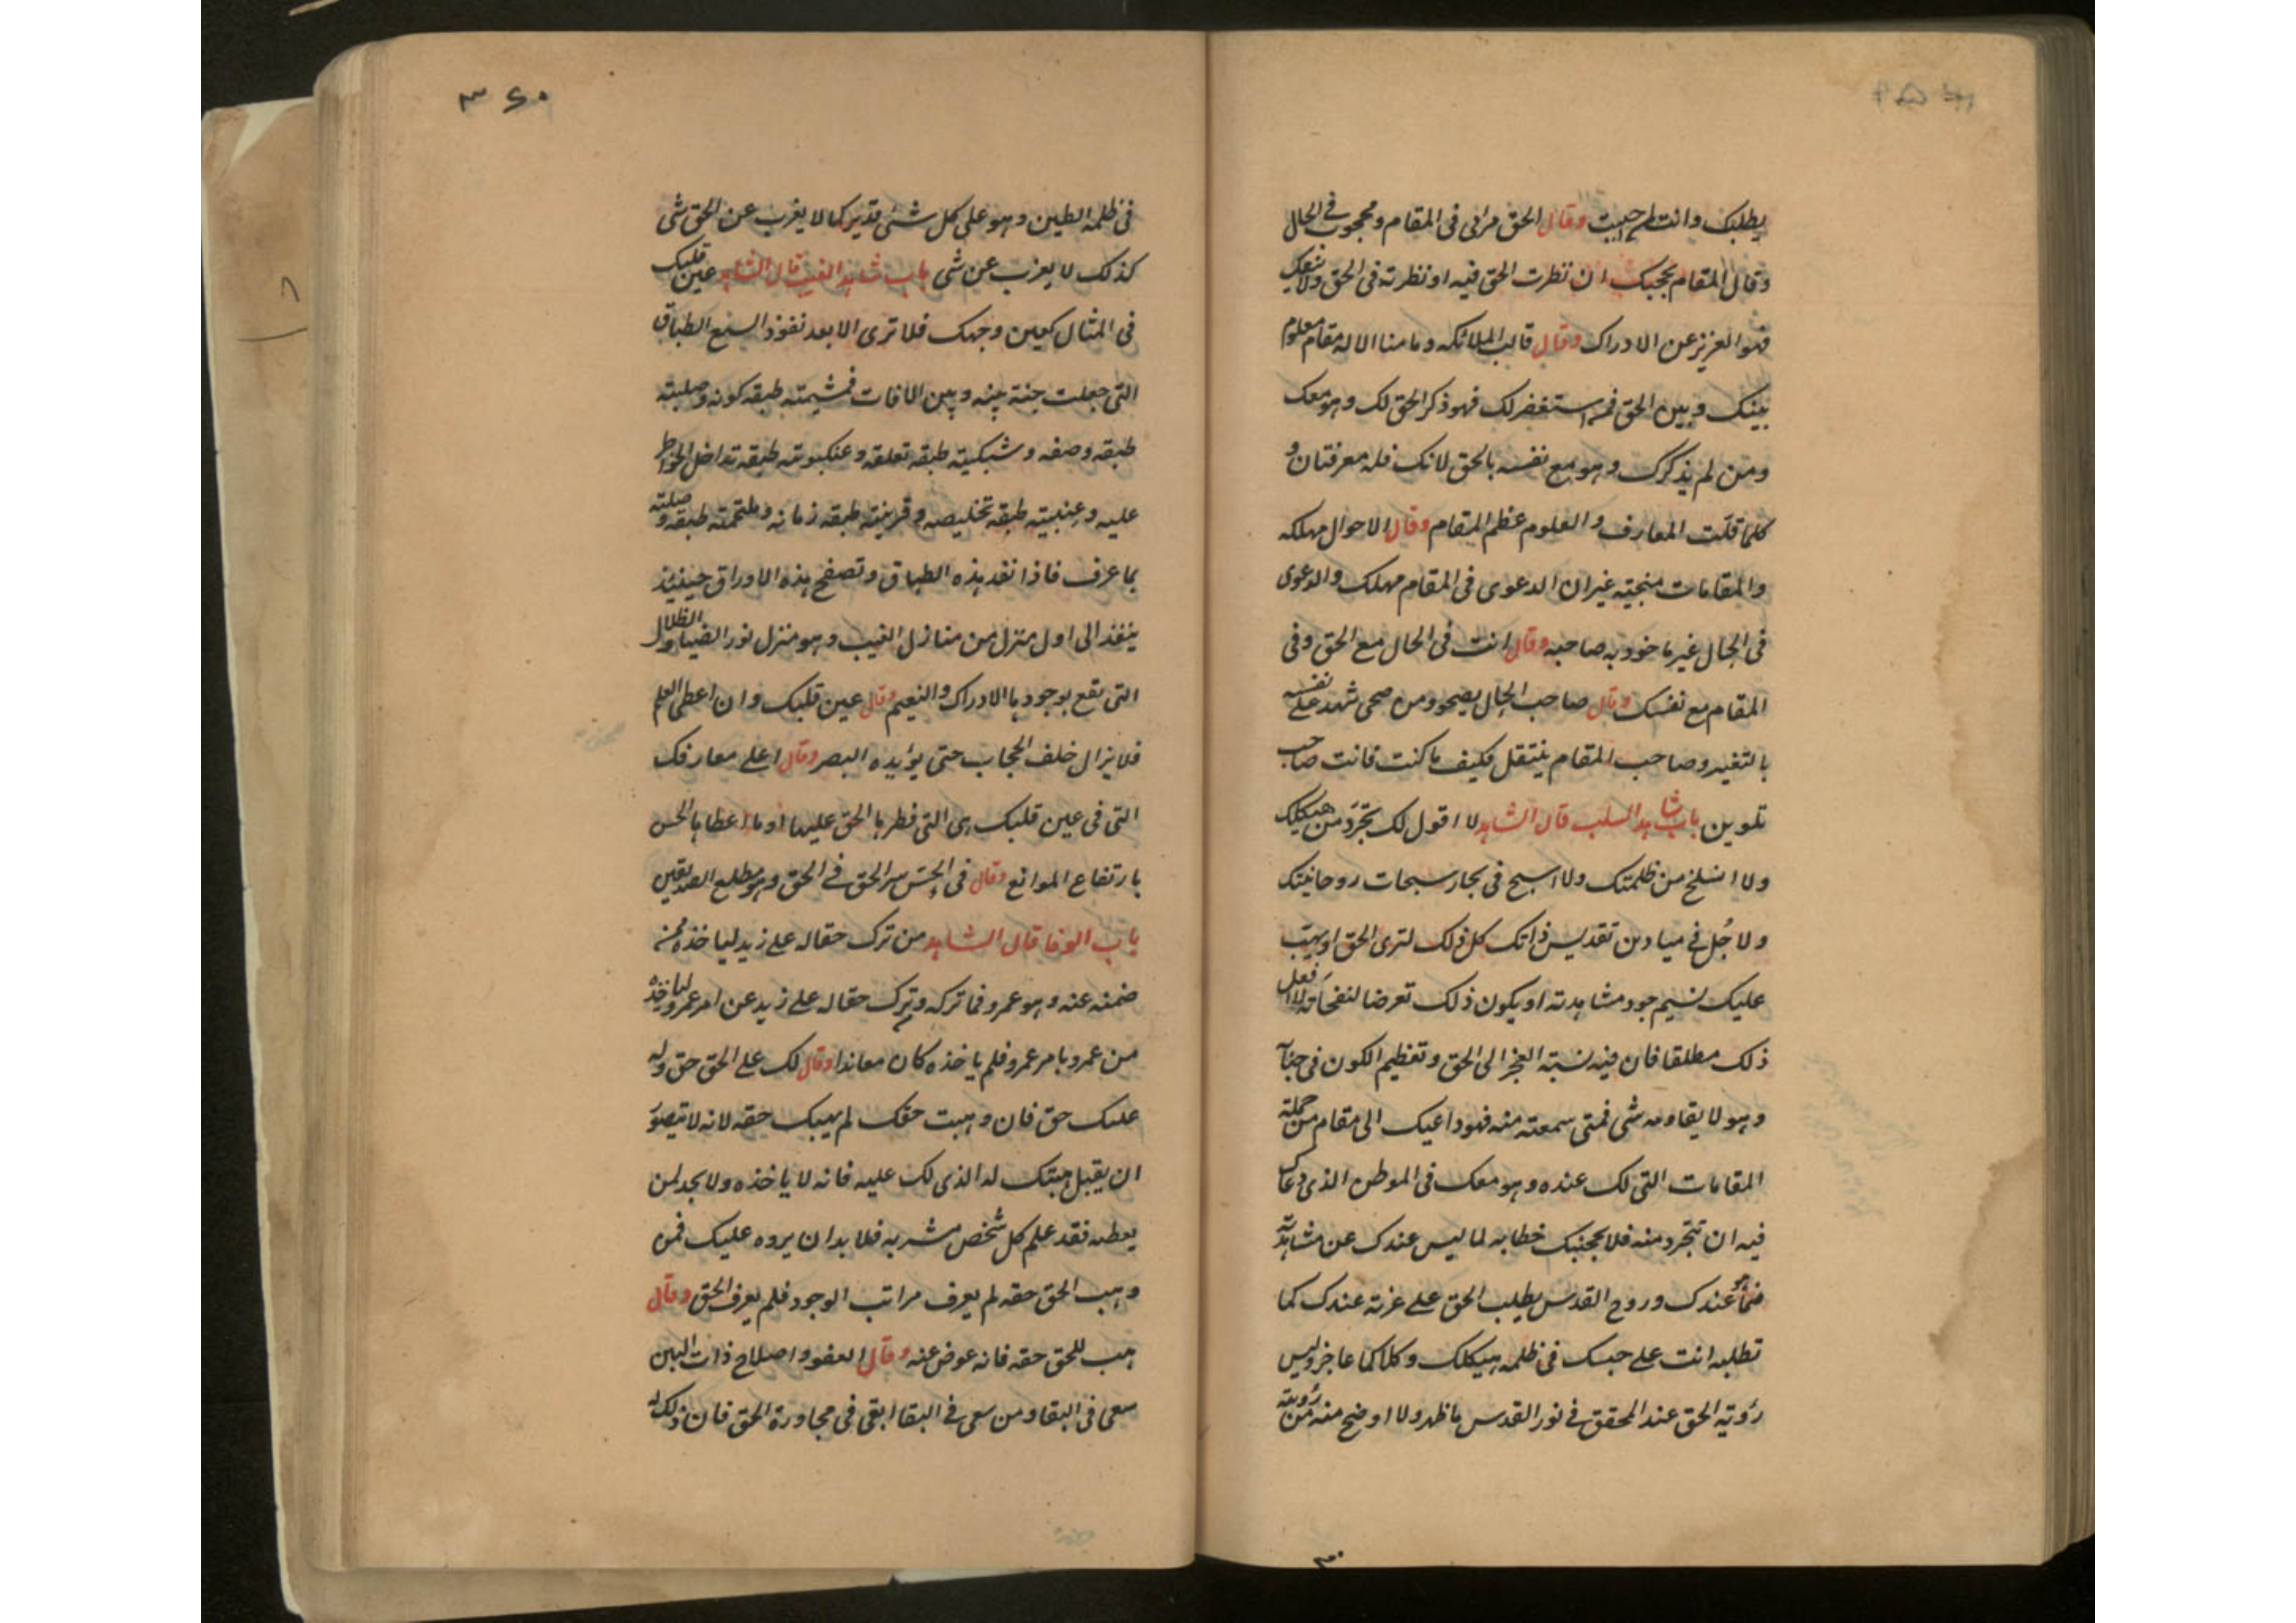 يطلبك وانت لم حببت وقال الحق مرائى فى المقام ومحجوب فى الحال
وقال المقام يحجبك ان نظرت الحق فيه او نظرته فى الحق ولا
فهو العزيز عن الادراك وقال قالت الملائكه وما منا الا له مقام معلوم
بينك وبين الحق فمن استغفر لك فهو ذكر الحق لك وهو معك
ومن لم يذكرك وهو مع نفسه بالحق لانك فله معرفتان و
كلما قلّت المعارف والعلوم عظم المقام وقال الاحوال مهلكه
والمقامات منجيته غير ان الدعوى فى المقام مهلك والدعوى
فى الحال غير ماخوذ به صاحبه وقال انت فى الحال مع الحق وفى
المقام مع نفسك وقال صاحب الحال يصحو ومن صحى شهد على نفسه
بالتغير وصاحب المقام ينتقل فكيف ما كنت فانت صاحب
تلوين باب شاهد السلب قال الشاهد لا اقول لك تجرّد من هيكلك
ولا انسلخ من ظلمتك ولا اسبح فى بحار سبحات روحانيتك
ولا جُل فى ميادين تقديس ذاتك كل ذلك لترى الحق او يهبّ
عليك نسيم جود مشاهدته او يكون ذلك تعرضا لنفحاته لا افعل
ذلك مطلقا فان فيه نسبته العجز الى الحق وتعظيم الكون فى جنا
وهو لا يقاومه شى فمتى سمعته منه فهو داعيك الى مقام من جملة
المقامات التى لك عنده وهو معك فى الموطن الذى دعاك
فيه ان تتجرد منه فلا يحجبنك خطابه لما ليس عندك عن مشاهدة
فما هو عندك وروح القدس يطلب الحق على عزته عندك كما
تطلبه انت على حبسك فى ظلمه هيكلك وكلاكما عاجز وليس
رؤية الحق عند المحقق فى نور القدس باظهر ولا اوضح منه من رؤيته
٣۶٠
فى ظلمه الطين وهو على كل شئ قدير كما لا يغرب عن الحق شى
كذلك لا يعزب عن شى باب شاهد الغيب قال الشاهد عين قلبك
فى المثال كعين وجهك فلا ترى الا بعد نفوذ السبع الطباق
التى جعلت جنة بينه وبين الافات فمشيمته طبقه كونه وصلبيته
طبقه وصفه وشبكيته طبقه تعلقه وعنكبوتيه طبقه تداخل الخواطر
عليه وعنبيته طبقه تخليصه وقرنيته طبقه زمانه وملتحمته طبقه وصلته
بما عرف فاذا نفد هذه الطباق وتصفح هذه الاوراق حينئذ
ينفذ الى اول منزل من منازل الغيب وهو منزل نور الضيا والظلال
التى تقع بوجودها الادراك والنعيم وقال عين قلبك وان اعطى العلم
فلا يزال خلف الحجاب حتى يؤيده البصر وقال اعلى معارفك
التى فى عين قلبك هى التى فطرها الحق عليها او ما اعطاها الحس
بارتفاع الموانع وقال فى الحسّ سر الحق فى الحق وهو مطلع الصديقين
باب الوفا قال الشاهد من ترك حقا له على زيد لياخذه ممن
ضمنه عنه وهو عمرو فما تركه وترك حقا له على زيد عن امر عمرو لياخذه
من عمرو بامر عمرو فلم ياخذه كان معاندا وقال لك على الحق حق وله
عليك حق فان وهبت حقك لم يهبك حقه لانه لا يتصور
ان يقبل هبتك له الذى لك عليه فانه لا ياخذه ولا يجد لمن
يعطيه فقد علم كل شخص مشربه فلا بد ان يرده عليك فمن
وهب الحق حقه لم يعرف مراتب الوجود فلم يعرف الحق وقال
هب للحق حقه فانه عوض عنه وقال العفو واصلاح ذات البين
سعى فى البقا ومن سعى فى البقا ابقى فى مجاورة الحق فان ذلك